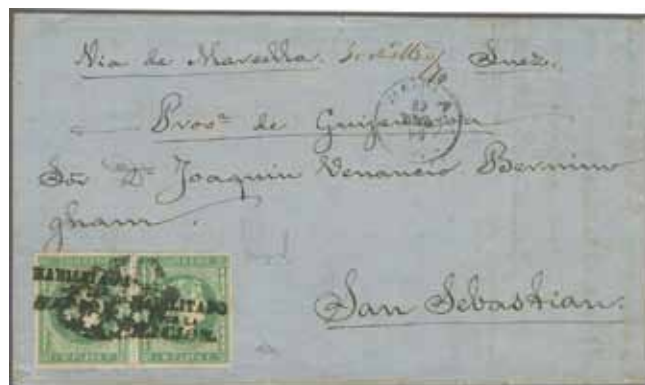 Via de Marsella. Suez.
Prov.ª de Guipuzcoa
Sor Dn Joaquin Venancio Bermin
gham.
San Sebastian.
HABILITADO
HABILITADO
POR LA
NACION.